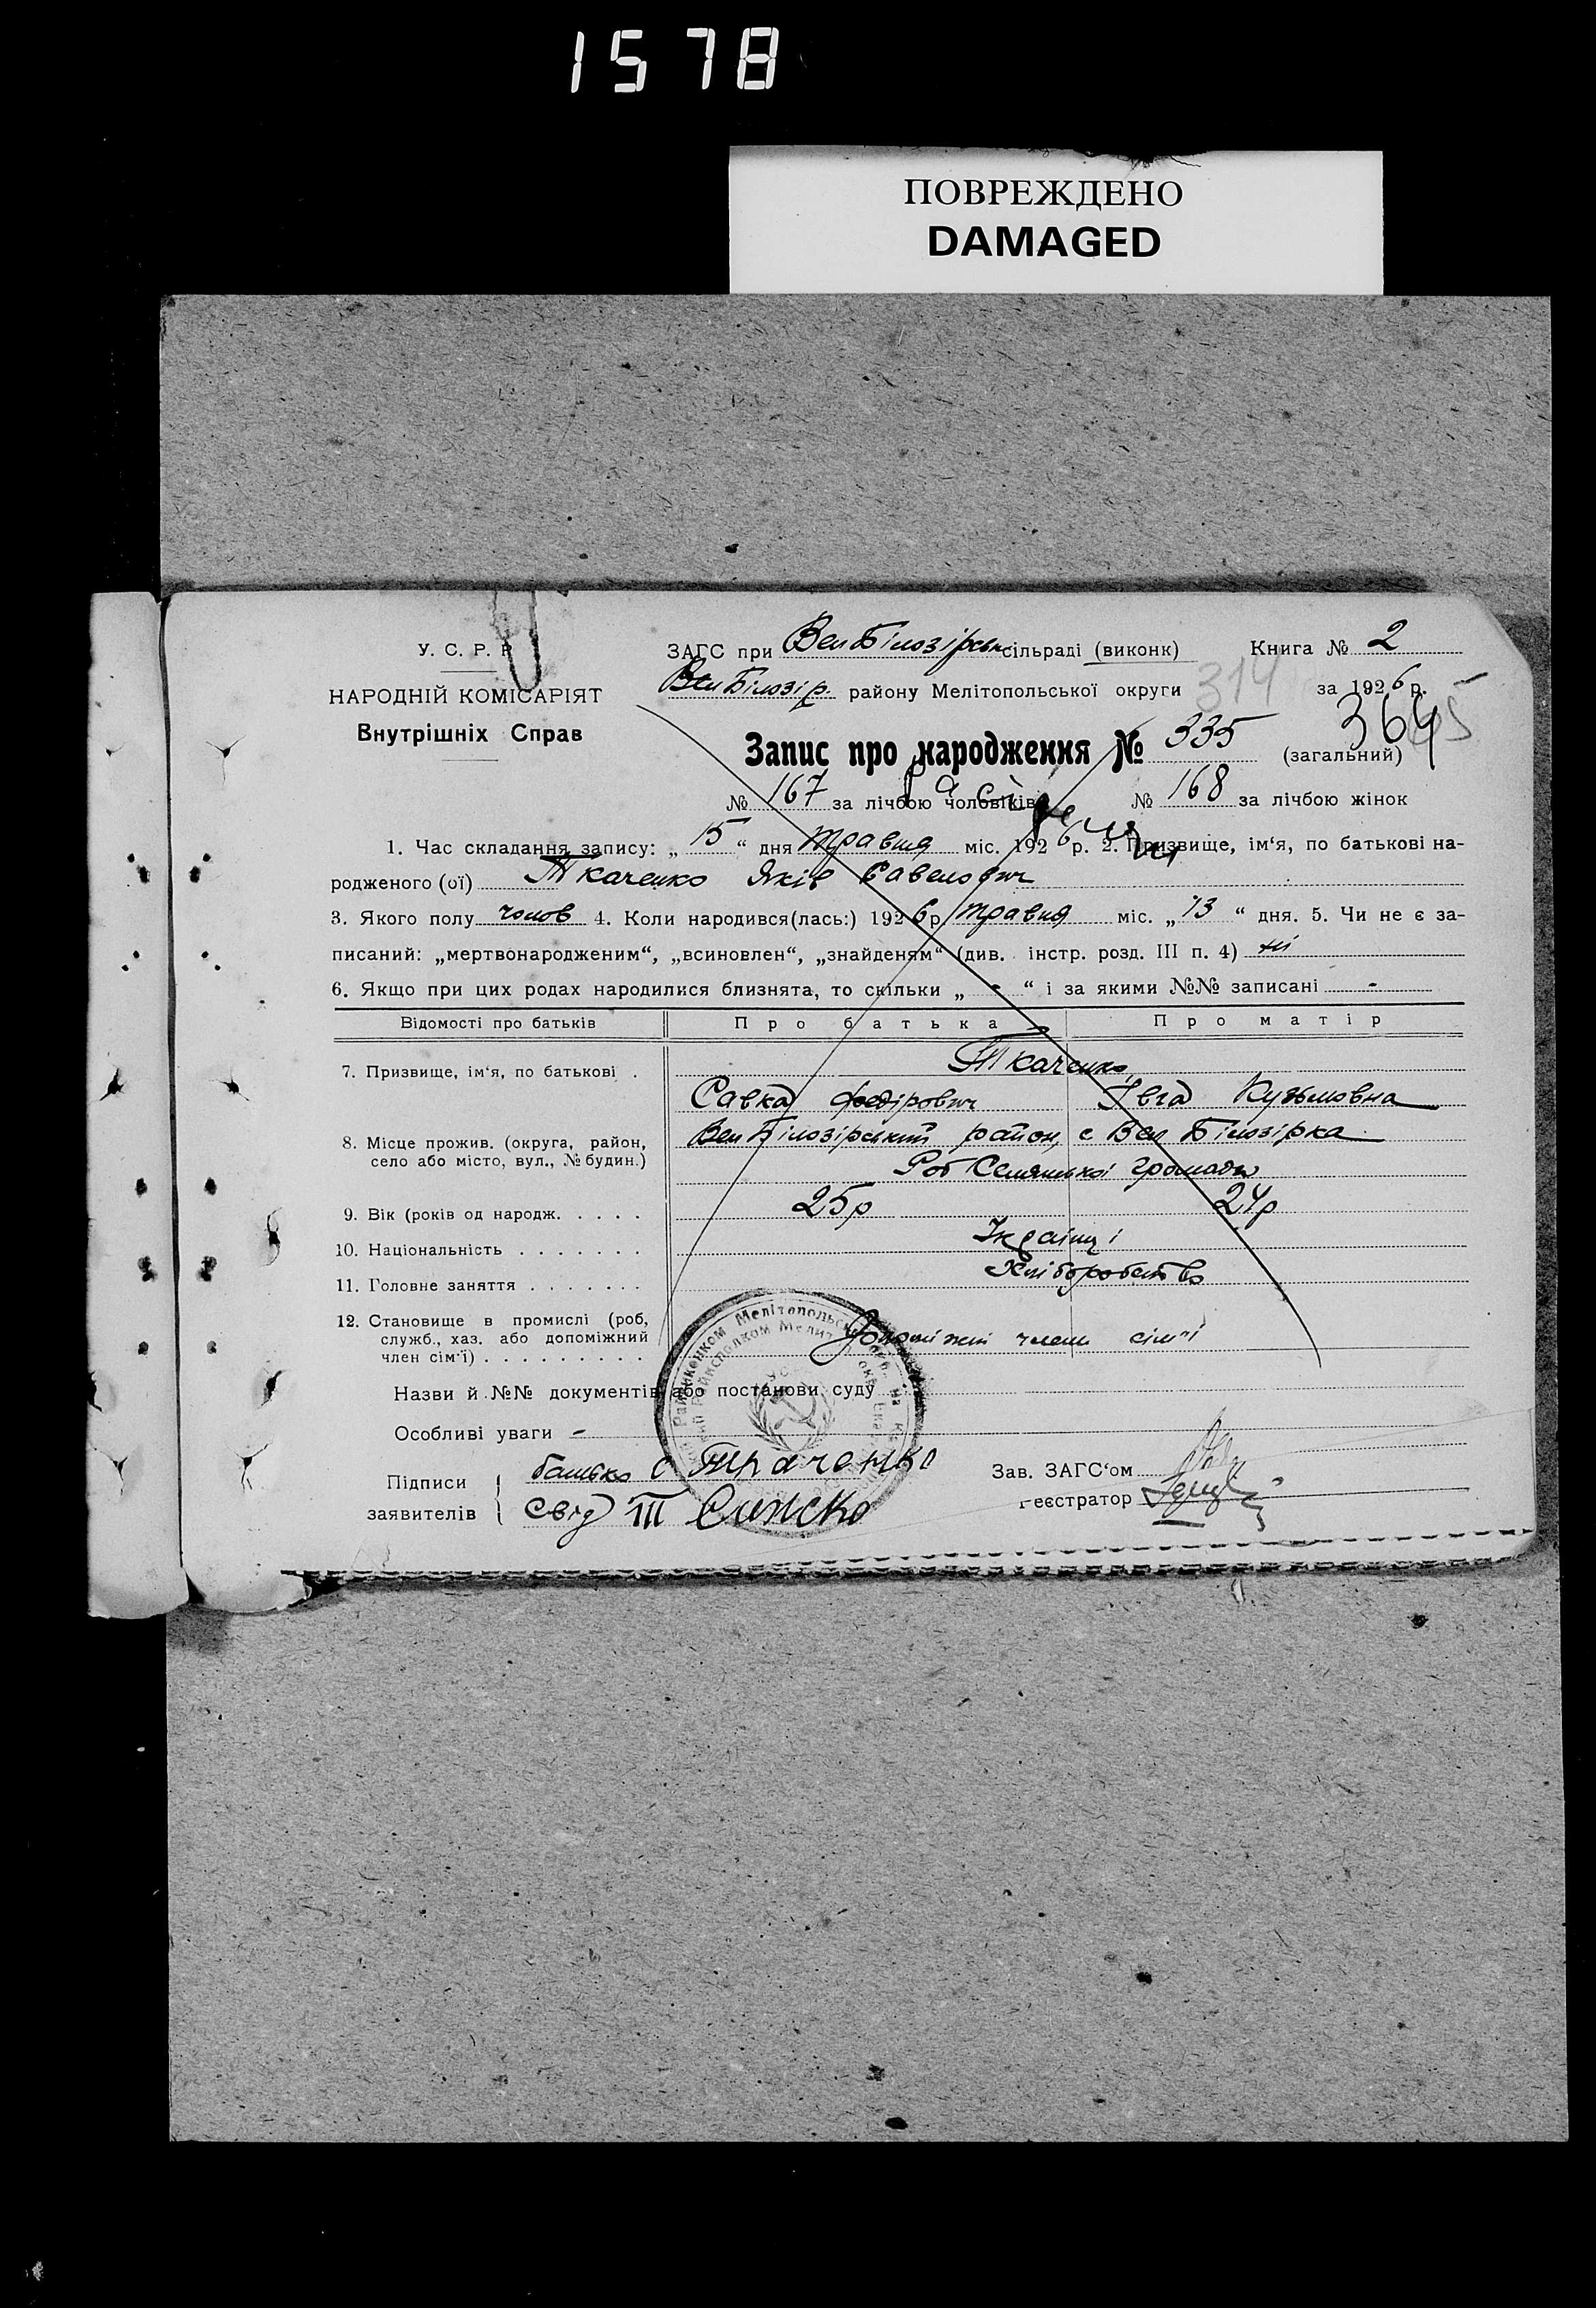 1578
ПОВРЕЖДЕНО
DAMAGED
У. С. Р. Р.
ЗАГС при ВелБілозірськ сільраді (виконк) Книга № 2
ВелБілозір. району Мелітопольської округи 314 за 1926 р.
НАРОДНІЙ КОМІСАРІЯТ
Внутрішніх Справ
Запис про народження № 335 (загальний) 364
№ 167 за лічбою чоловіків № 168 за лічбою жінок
1. Час складання запису: „ 15 “ дня травня міс. 1926 р. 2. Призвище, ім‘я, по батькові на-
родженого (ої) Ткаченко Яків Савелович
3. Якого полу чолов 4. Коли народився(лась:) 1926 р. травня міс. „ 13 “ дня. 5. Чи не є за-
писаний: „мертвонародженим“, „всиновлен“, „знайденям“ (див. інстр. розд. III п. 4) ні
6. Якщо при цих родах народилися близнята, то скільки „ - “ і за якими №№ записані -
Відомості про батьків Про батька Про матір
7. Призвище, ім‘я, по батькові . Ткаченко
Савка Федірович Івга Кузьмовна
8. Місце прожив. (округа, район, ВелБілозірський район, с Вел Білозірка
село або місто, вул., № будин.)
Роб Селянської громади
9. Вік (років од народж. . . . . 25р 24р
10. Національність . . . . . . . Українці
11. Головне заняття . . . . . . . Хліборобство
12. Становище в промислі (роб,
служб., хаз. або допоміжний Допоміжні члени сім'ї
член сім‘ї) . . . . . . . . . .
Назви й №№ документів або постанови суду
Особливі уваги -
Підписи батько С Ткаченко Зав. ЗАГС‘ом
заявителів свід Т Сипско Реєстратор